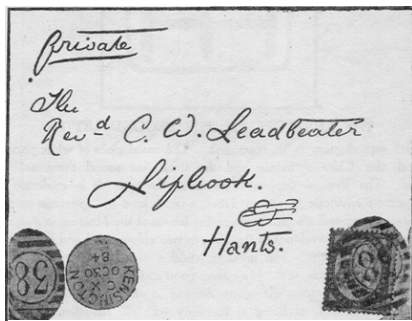 Private
The
Rev d C. W. Leadbeater
Liphook.
Hants.
38
KENSINGTON
C X
OC30
84
38